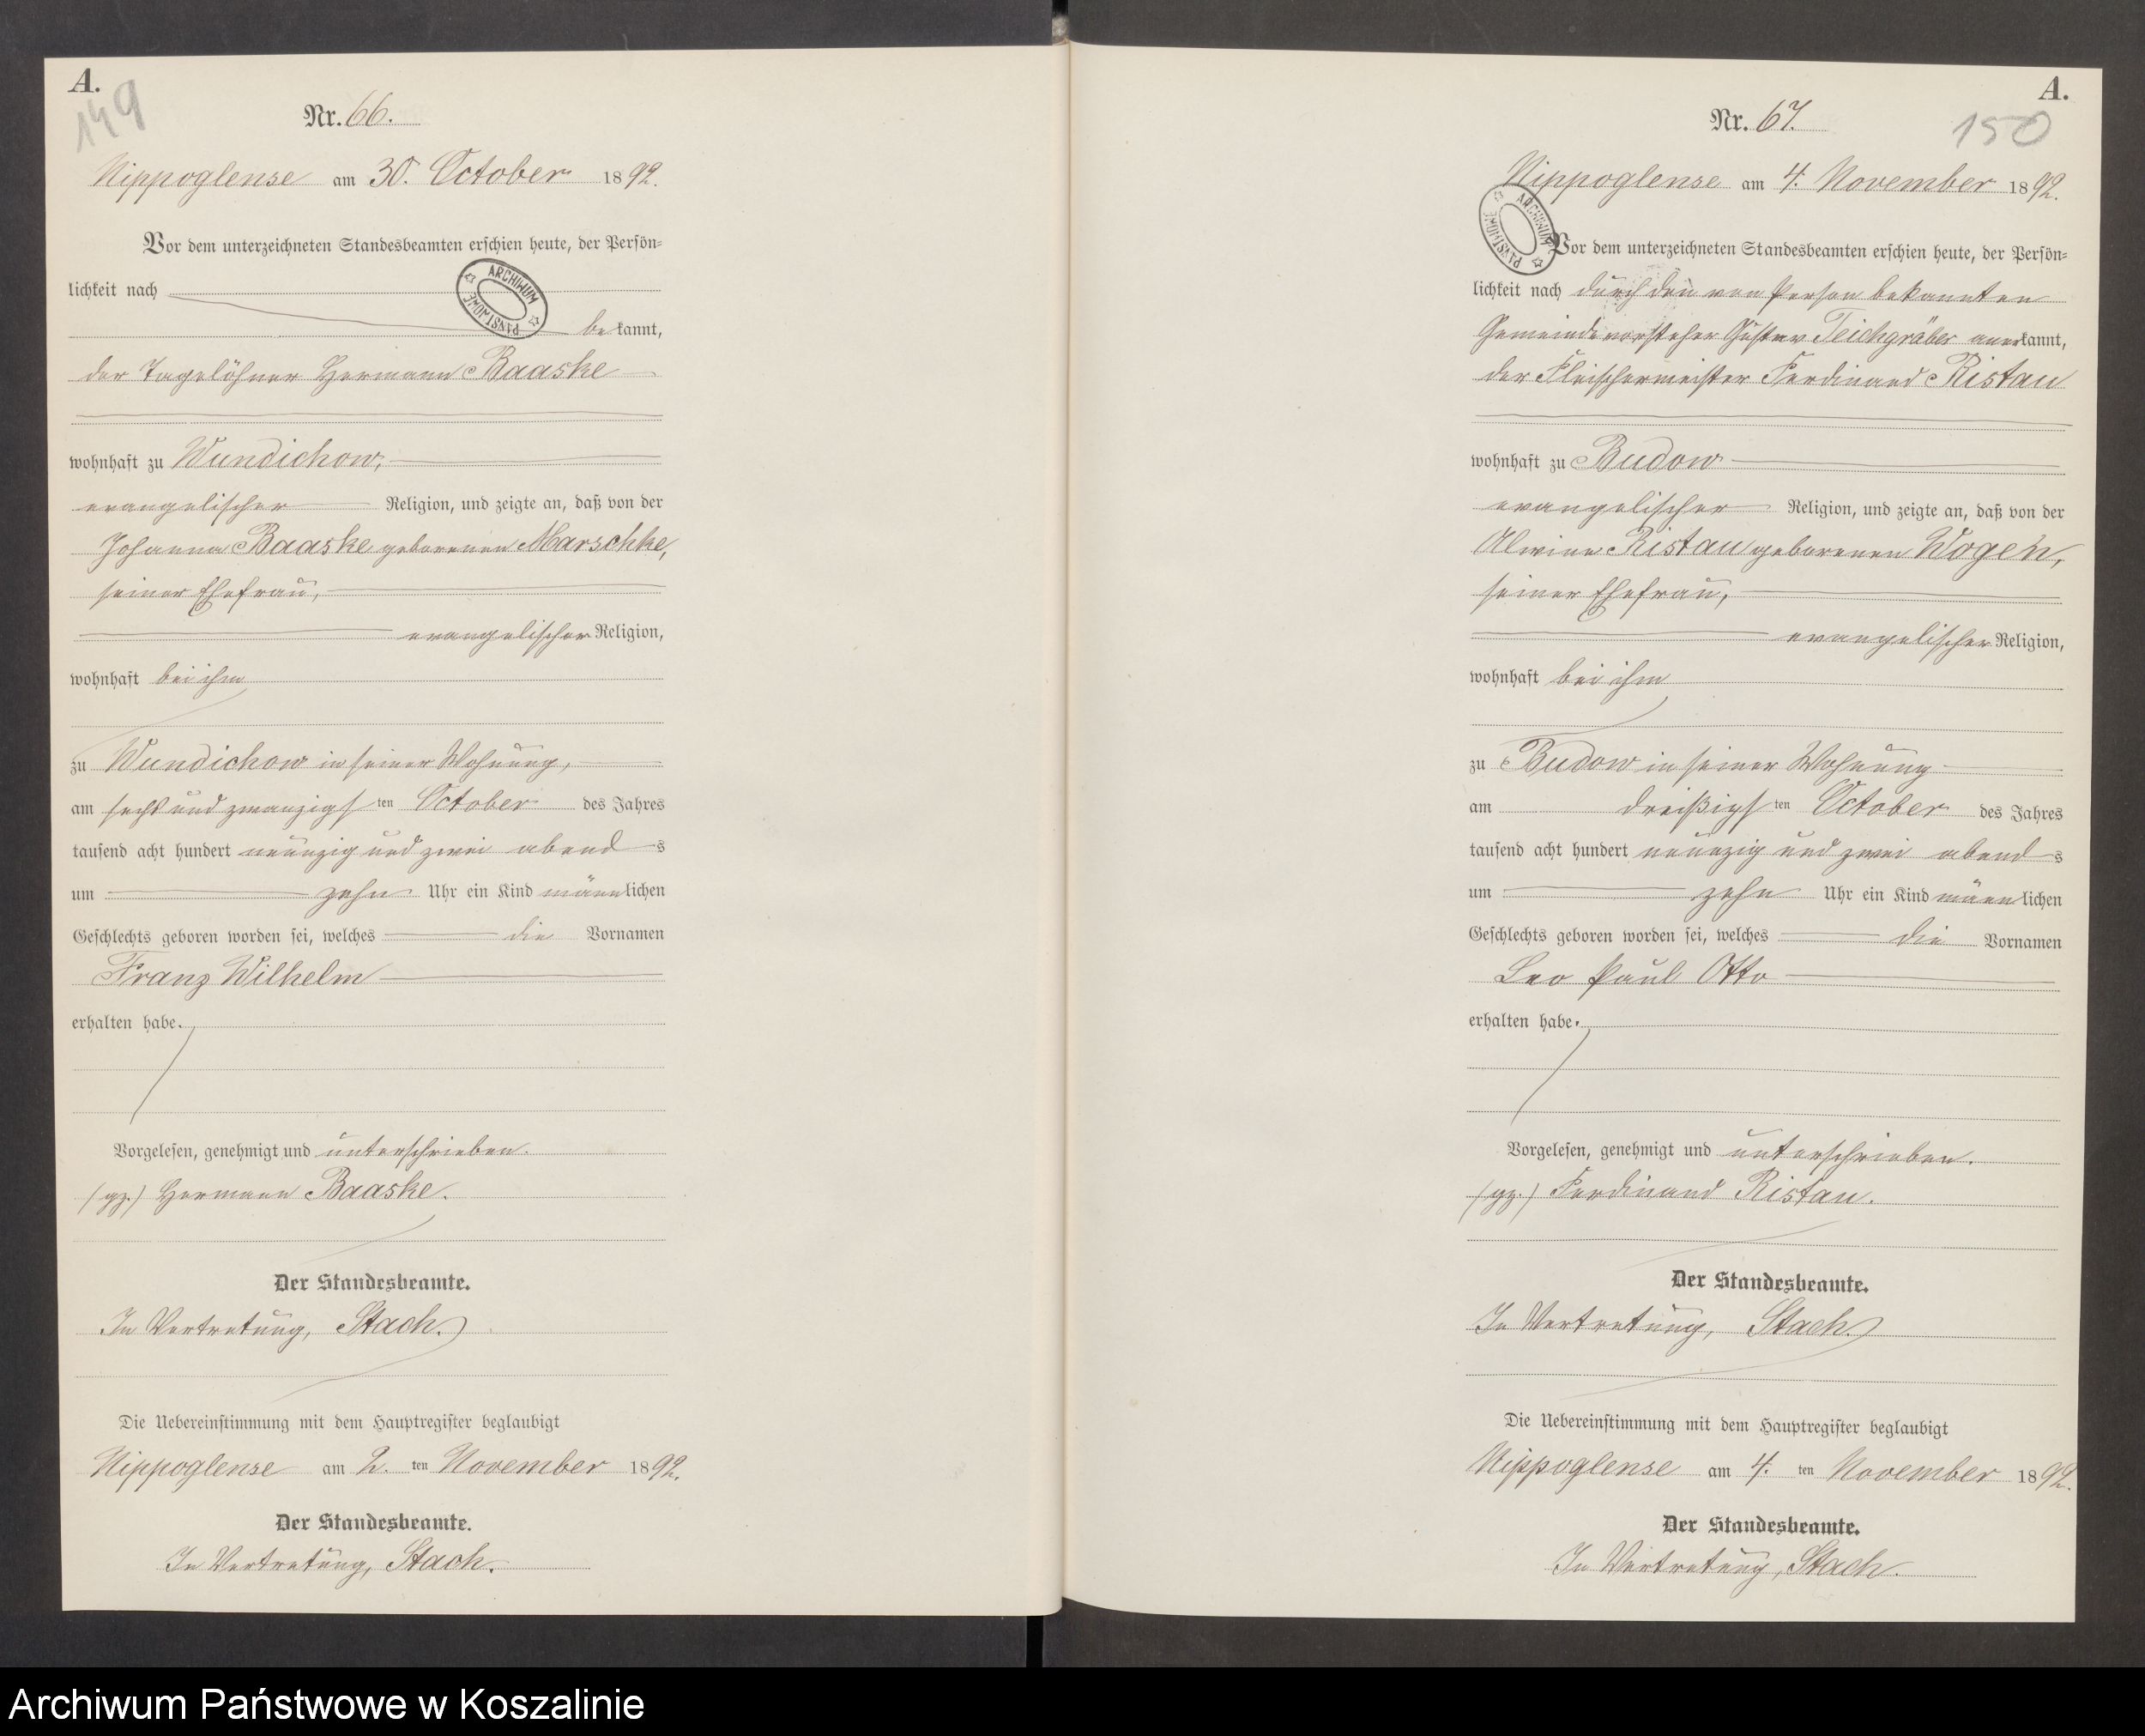 A.
149
Nr. 66.
Nippoglense am 30. October 1892.
Vor dem unterzeichneten Standesbeamten erschien heute, der Persön=
lichkeit nach
bekannt,
der Tagelöhner Hermann Baaske
wohnhaft zu Wundichow,
evangelischer Religion, und zeigte an, daß von der
Johanna Baaske geborenen Marschke,
seiner Ehefrau,
evangelischer Religion,
wohnhaft bei ihm
zu Wundichow in seiner Wohnung,
am sechs und zwanzigsten October des Jahres
tausend acht hundert neunzig und zwei abends
um zehn Uhr ein Kind männlichen
Geschlechts geboren worden sei, welches die Vornamen
Franz Wilhelm
erhalten habe.
Vorgelesen, genehmigt und unterschrieben.
(gz.) Hermann Baaske.
Der Standesbeamte.
In Vertretung, Stach.
Die Uebereinstimmung mit dem Hauptregister beglaubigt
Nippoglense am 2. ten November 1892.
Der Standesbeamte.
In Vertretung, Stach.
ARCHIWUM PAŃSTWOWE
A.
150
Nr. 67.
Nippoglense am 4. November 1892.
Vor dem unterzeichneten Standesbeamten erschien heute, der Persön=
lichkeit nach durch den von Person bekannten
Gemeindevorsteher Gustav Teichgräber anerkannt,
der Fleischermeister Ferdinand Ristau
wohnhaft zu Budow
evangelischer Religion, und zeigte an, daß von der
Alwine Ristau geborenen Wogen,
seiner Ehefrau,
evangelischer Religion,
wohnhaft bei ihm
zu Budow in seiner Wohnung
am dreißigsten October des Jahres
tausend acht hundert neunzig und zwei abends
um zehn Uhr ein Kind männlichen
Geschlechts geboren worden sei, welches die Vornamen
Leo Paul Otto
erhalten habe.
Vorgelesen, genehmigt und unterschrieben.
(gz.) Ferdinand Ristau.
Der Standesbeamte.
In Vertretung, Stach.
Die Uebereinstimmung mit dem Hauptregister beglaubigt
Nippoglense am 4. ten November 1892.
Der Standesbeamte.
In Vertretung, Stach.
ARCHIWUM PAŃSTWOWE
Archiwum Państwowe w Koszalinie